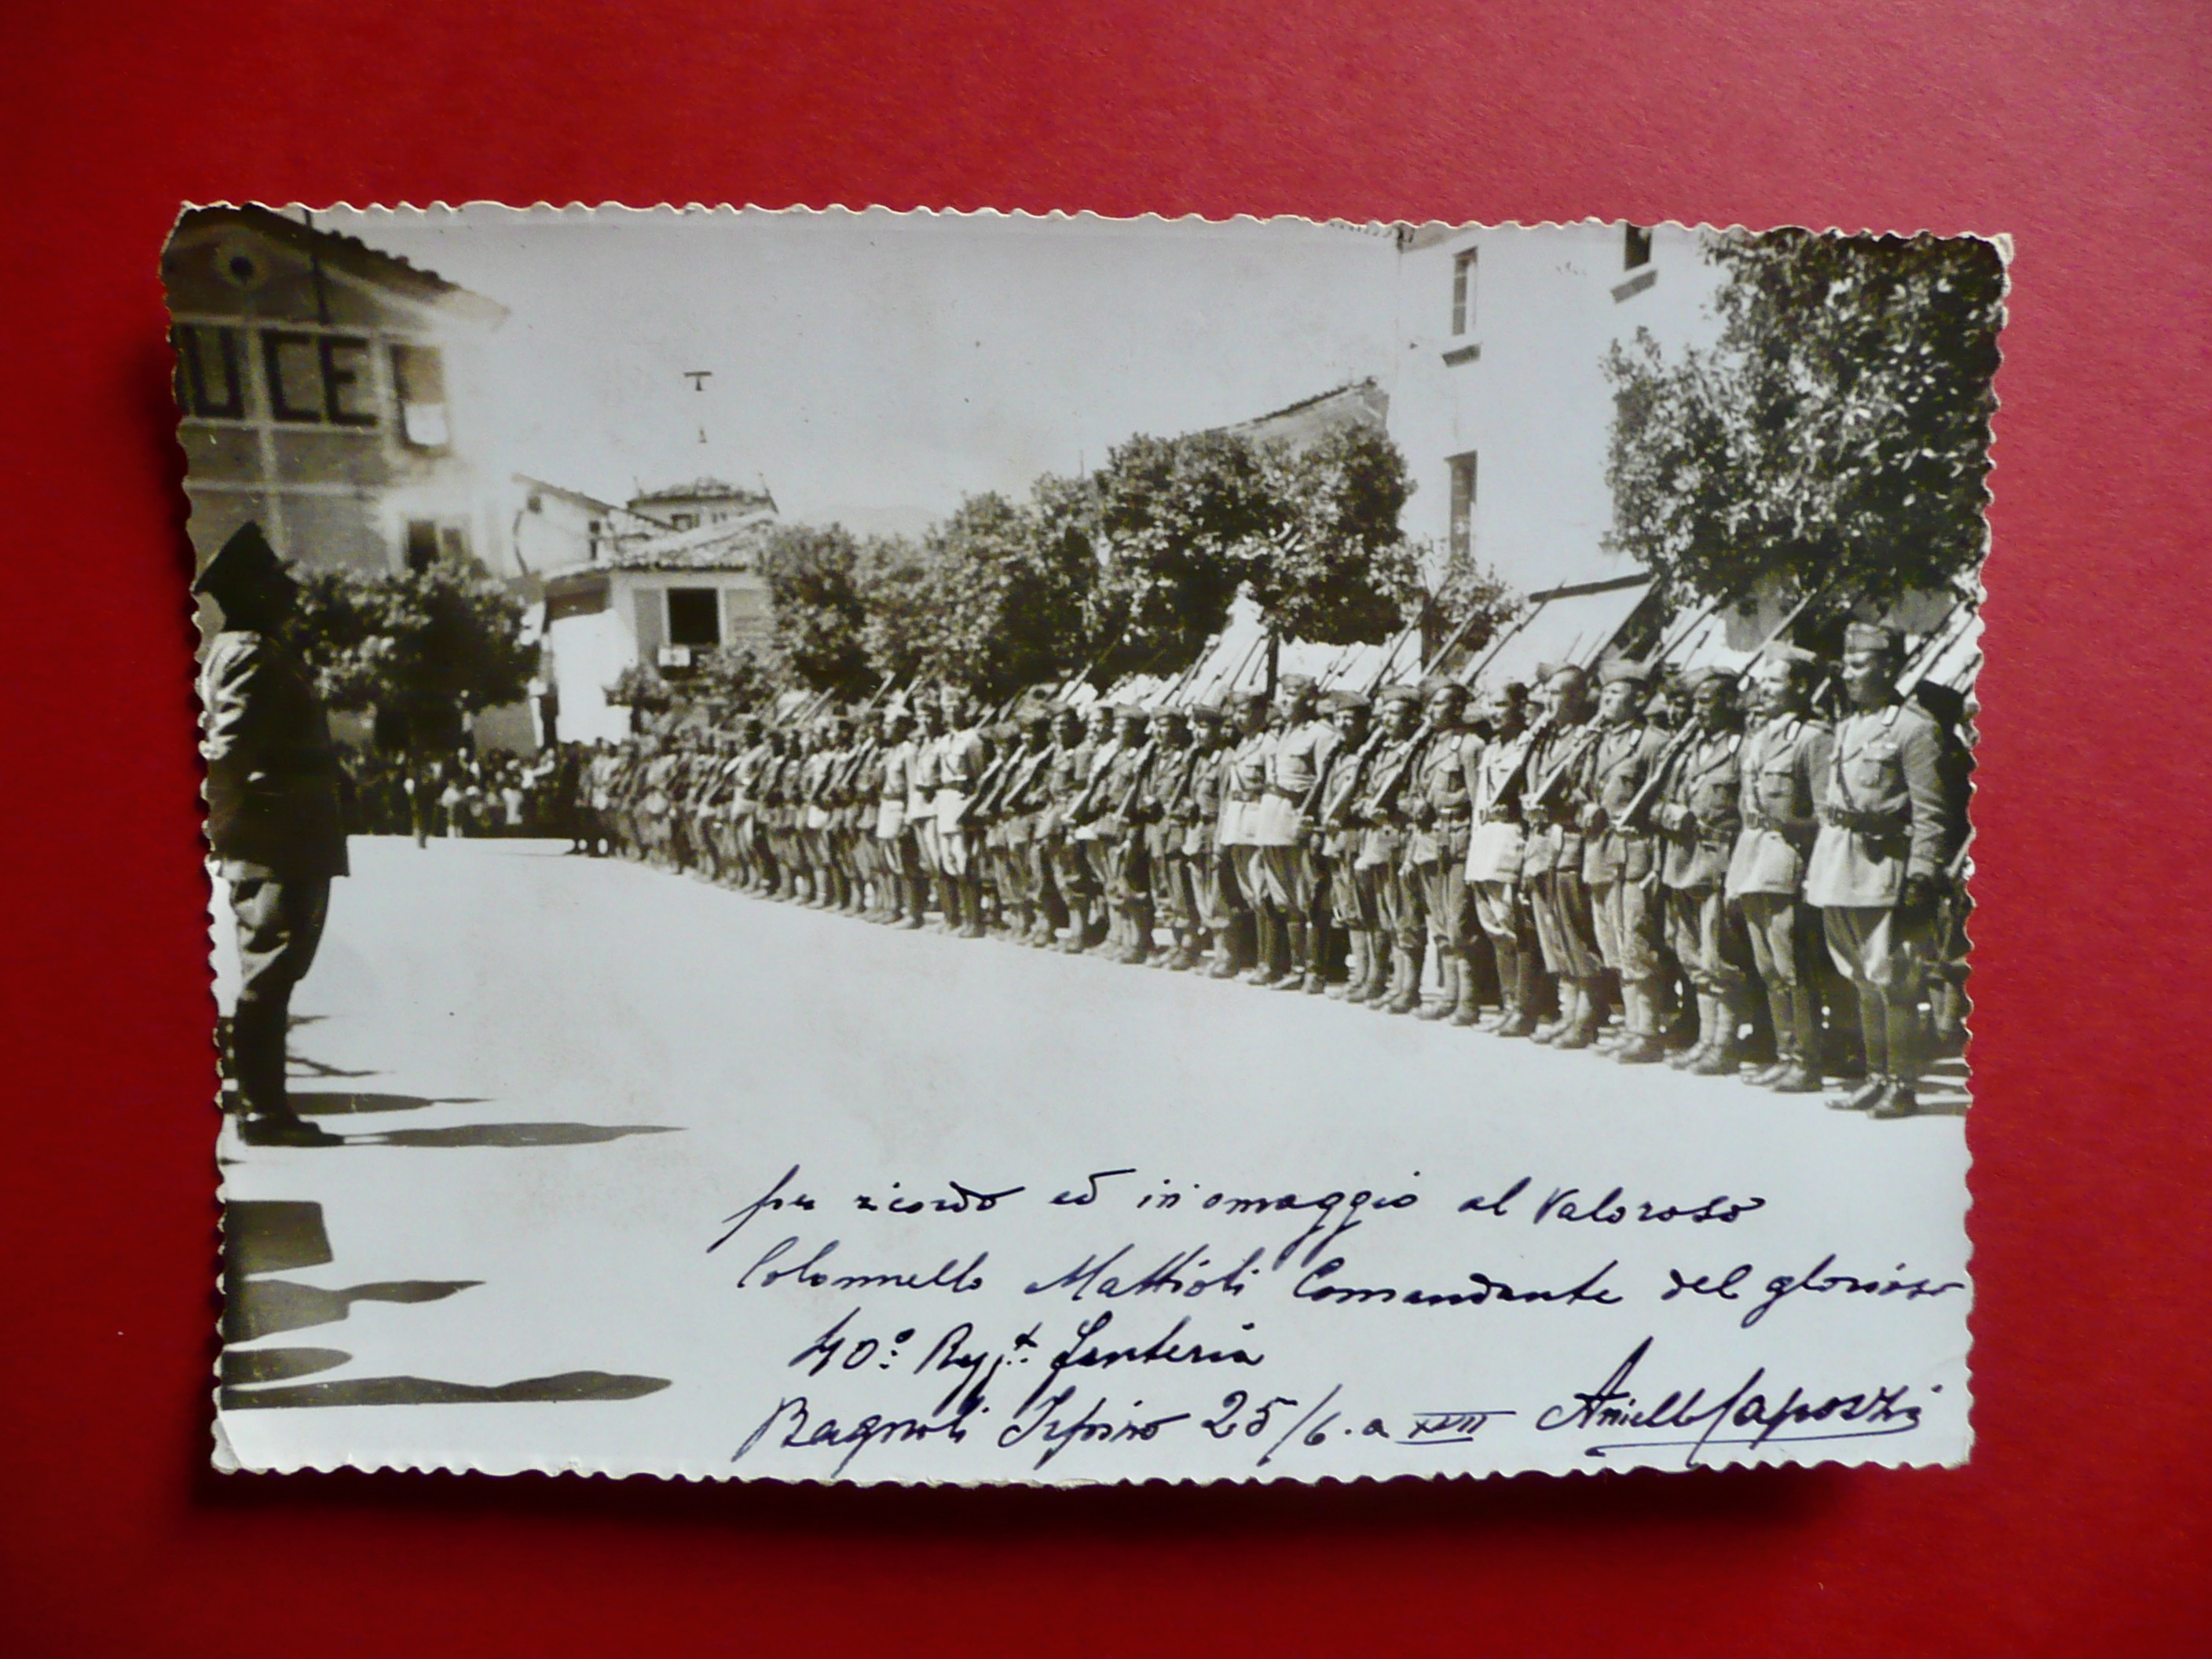 DUCE
per ricordo ed in omaggio al Valoroso
Colonnello Mattioli Comandante del glorioso
40º Regg.t Fanteria
Bagnoli Irpino 25/6. a XVII Aniello Capozzi